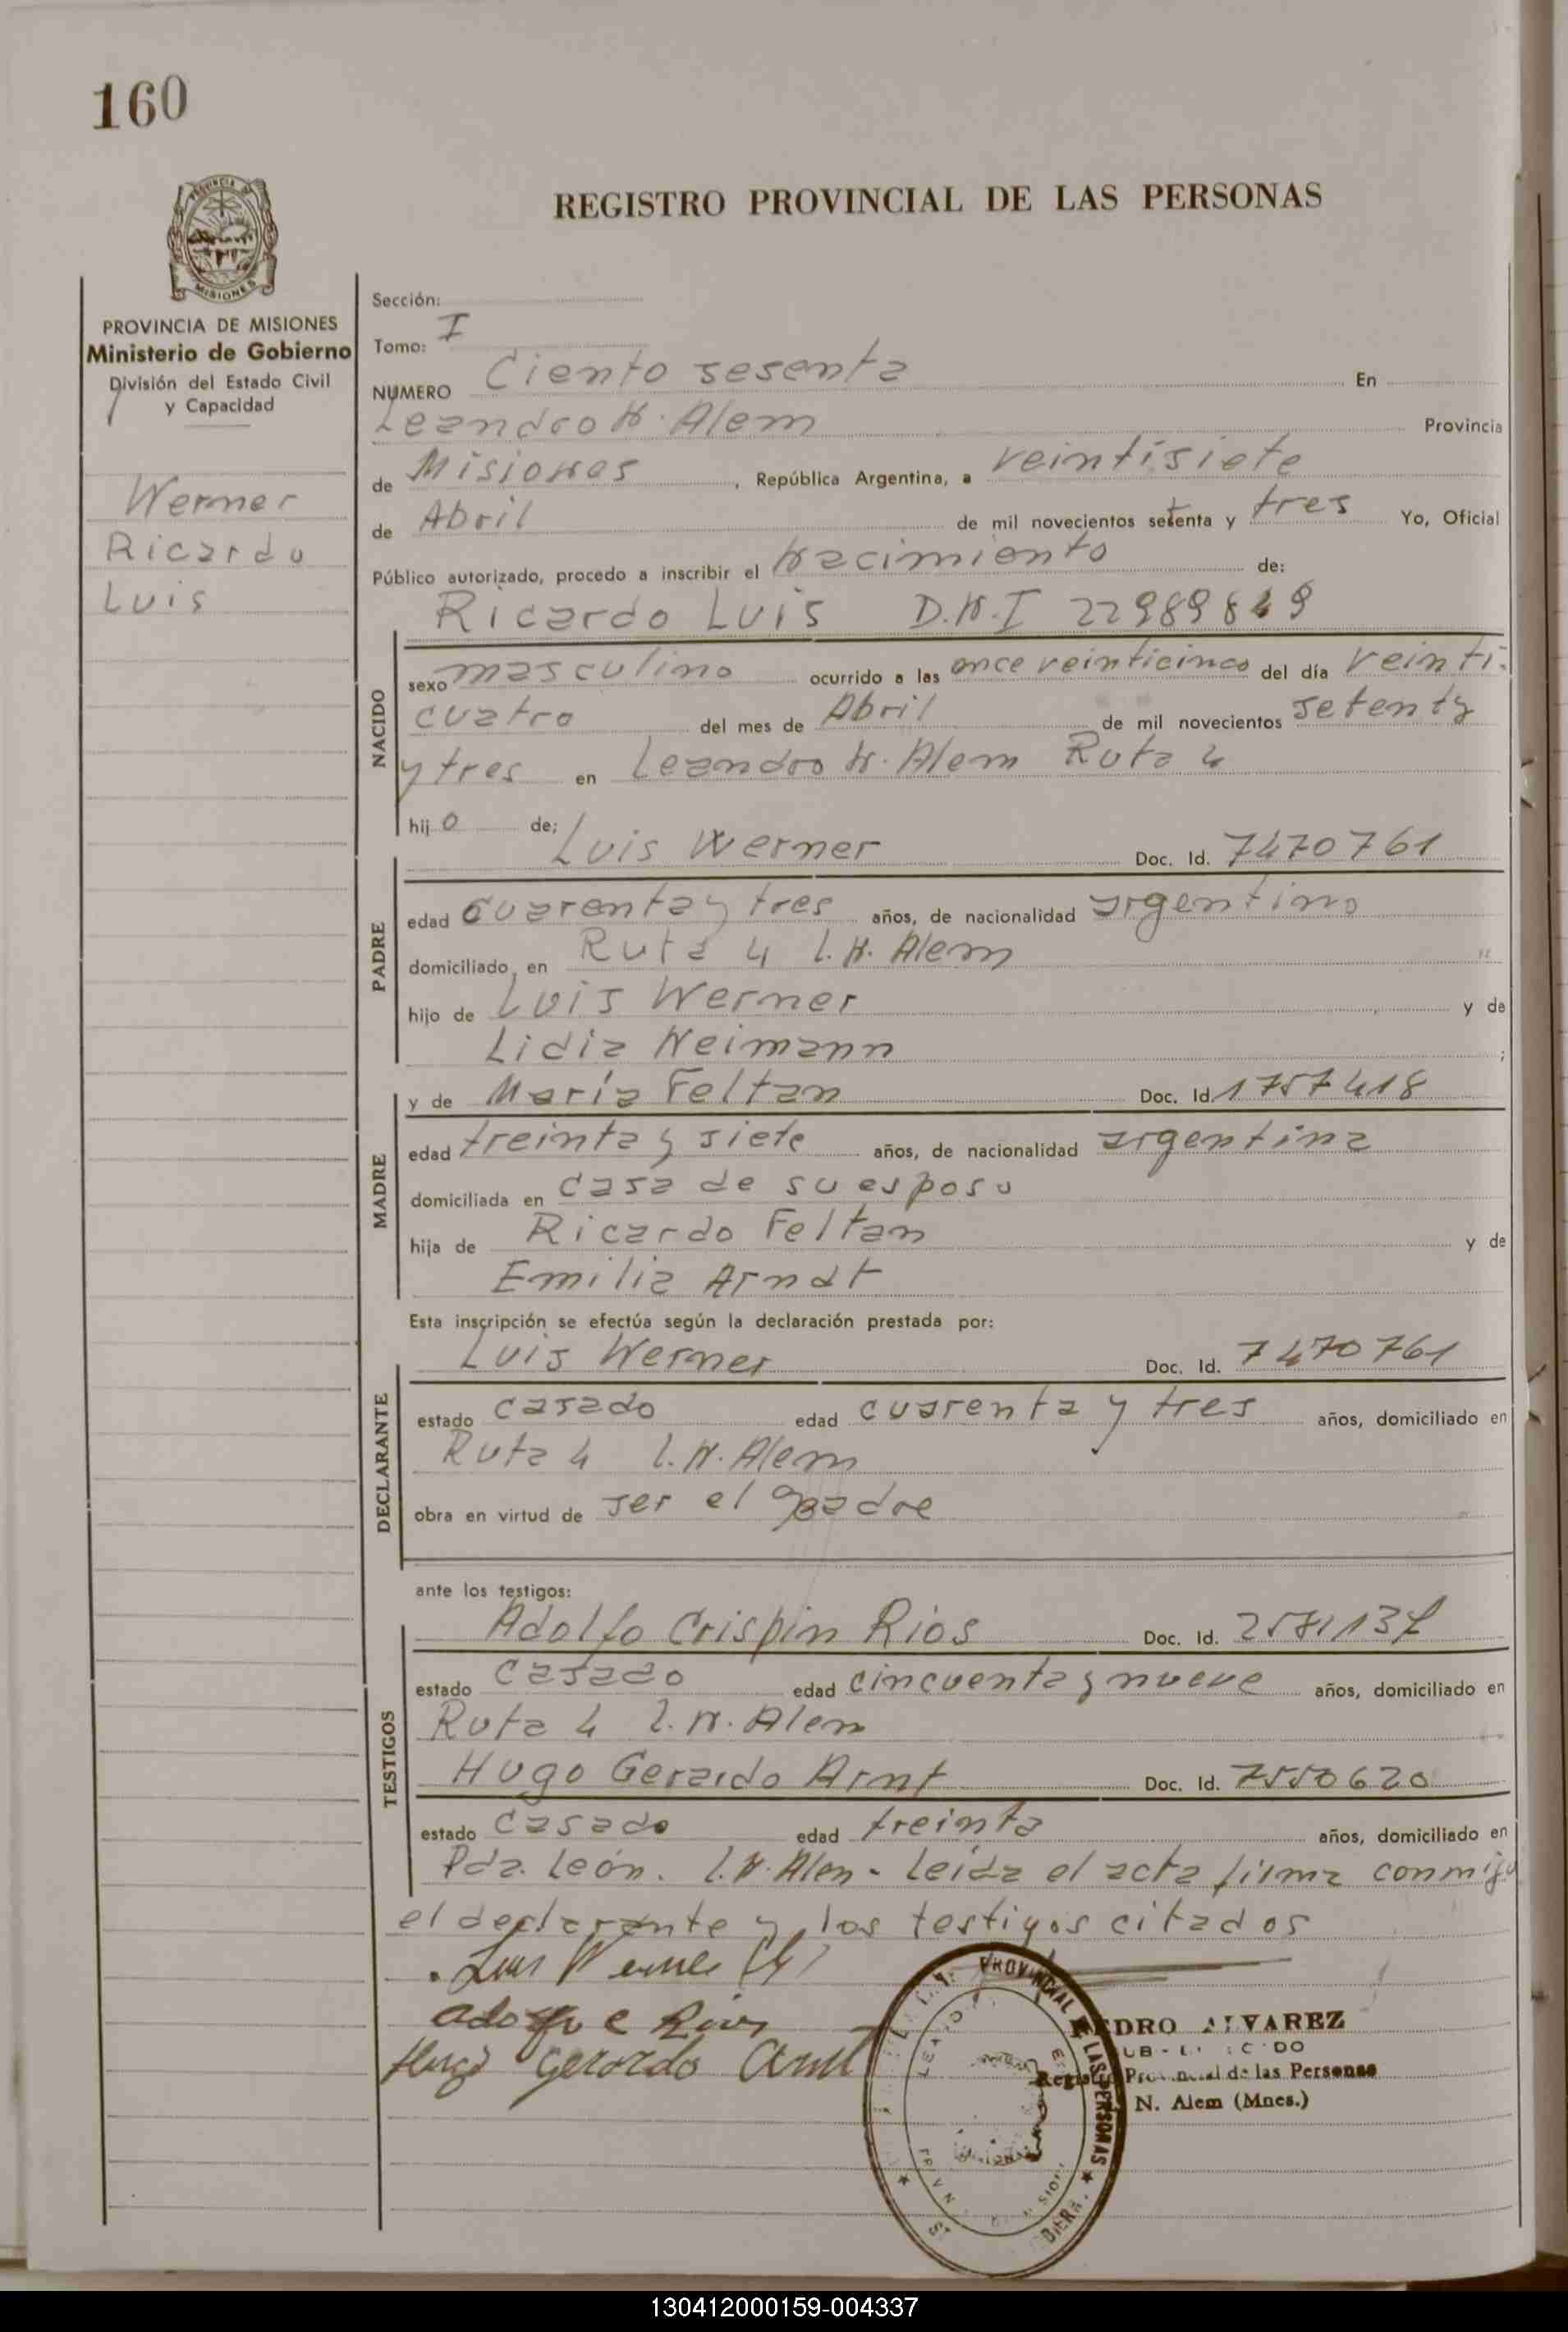 160
REGISTRO PROVINCIAL DE LAS PERSONAS
MISIONES
PROVINCIA DE MISIONES
Ministerio de Gobierno
División del Estado Civil
y Capacidad
Werner
Ricardo
Luis
Sección:
Tomo: I
NUMERO Ciento sesenta En
Leandro N. Alem Provincia
de Misiones, República Argentina, a veintisiete
de Abril de mil novecientos setenta y tres Yo, Oficial
Público autorizado, procedo a inscribir el Nacimiento de:
Ricardo Luis D.N.I
NACIDO
sexo masculino ocurrido a las once veinticinco del día veinti-
cuatro del mes de Abril de mil novecientos setenta
y tres en Leandro N. Alem Ruta 4
hijo de; Luis Werner Doc. Id. 7470761
PADRE
edad cuarenta y tres años, de nacionalidad argentino
domiciliado, en Ruta 4 L.N. Alem
hijo de Luis Werner y de
Lidia Neimann ;
y de María Feltan Doc. Id. 1757418
MADRE
edad treinta y siete años, de nacionalidad argentina
domiciliada en casa de su esposo
hija de Ricardo Feltan y de
Emilia Arndt
Esta inscripción se efectúa según la declaración prestada por:
Luis Werner Doc. Id. 7470761
DECLARANTE
estado casado edad cuarenta y tres años, domiciliado en
Ruta 4 L.N. Alem
obra en virtud de ser el padre
ante los testigos:
Adolfo Crispin Rios Doc. Id.
TESTIGOS
estado casado edad cincuenta y nueve años, domiciliado en
Ruta 4 L.N. Alem
Hugo Gerardo Arnt Doc. Id. 7550620
estado casado edad treinta años, domiciliado en
Pda. León. L.N. Alem - Leída el acta firma conmigo
el declarante y los testigos citados
Luis Werner (h)
Adolfo C Rios
Hugo Gerardo Arnt
PROVINCIAL DE LAS PERSONAS
PEDRO ALVAREZ
Registro Provincial de las Personas
N. Alem (Mnes.)
130412000159-004337